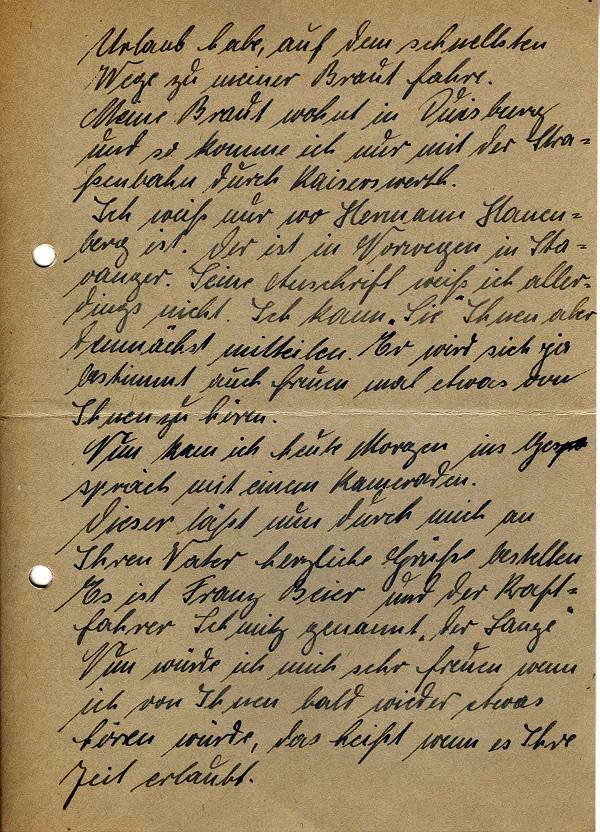 Urlaub habe, auf dem schnellsten
Wege zu meiner Braut fahre.
Meine Braut wohnt in Duisburg
und so komme ich nur mit der Stra=
ßenbahn durch Kaiserswerth.
Ich weiß nur wo Hermann Hanen=
berg ist. Der ist in Norwegen in Sta=
vanger. Seine Anschrift weiß ich aller=
dings nicht. Ich kann „Sie" Ihnen aber
demnächst mitteilen. Er wird sich ja
bestimmt auch freuen mal etwas von
Ihnen zu hören.
Nun kam ich heute Morgen ins Ge
spräch mit einem Kameraden.
Dieser läßt nun durch mich an
Ihren Vater herzliche Grüße bestellen
Es ist Franz Beier und der Kraft=
fahrer Schmitz genannt „der Lange"
Nun würde ich mich sehr freuen wenn
ich von Ihnen bald wieder etwas
hören würde, das heißt wenn es Ihre
Zeit erlaubt.